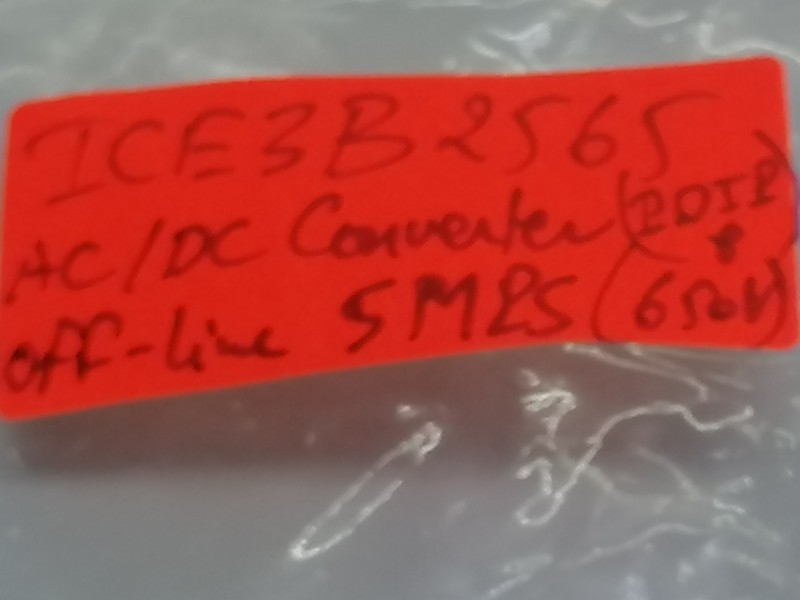 ICE3B2565
AC/DC Converter (PDIP
off-line SMPS (650V)